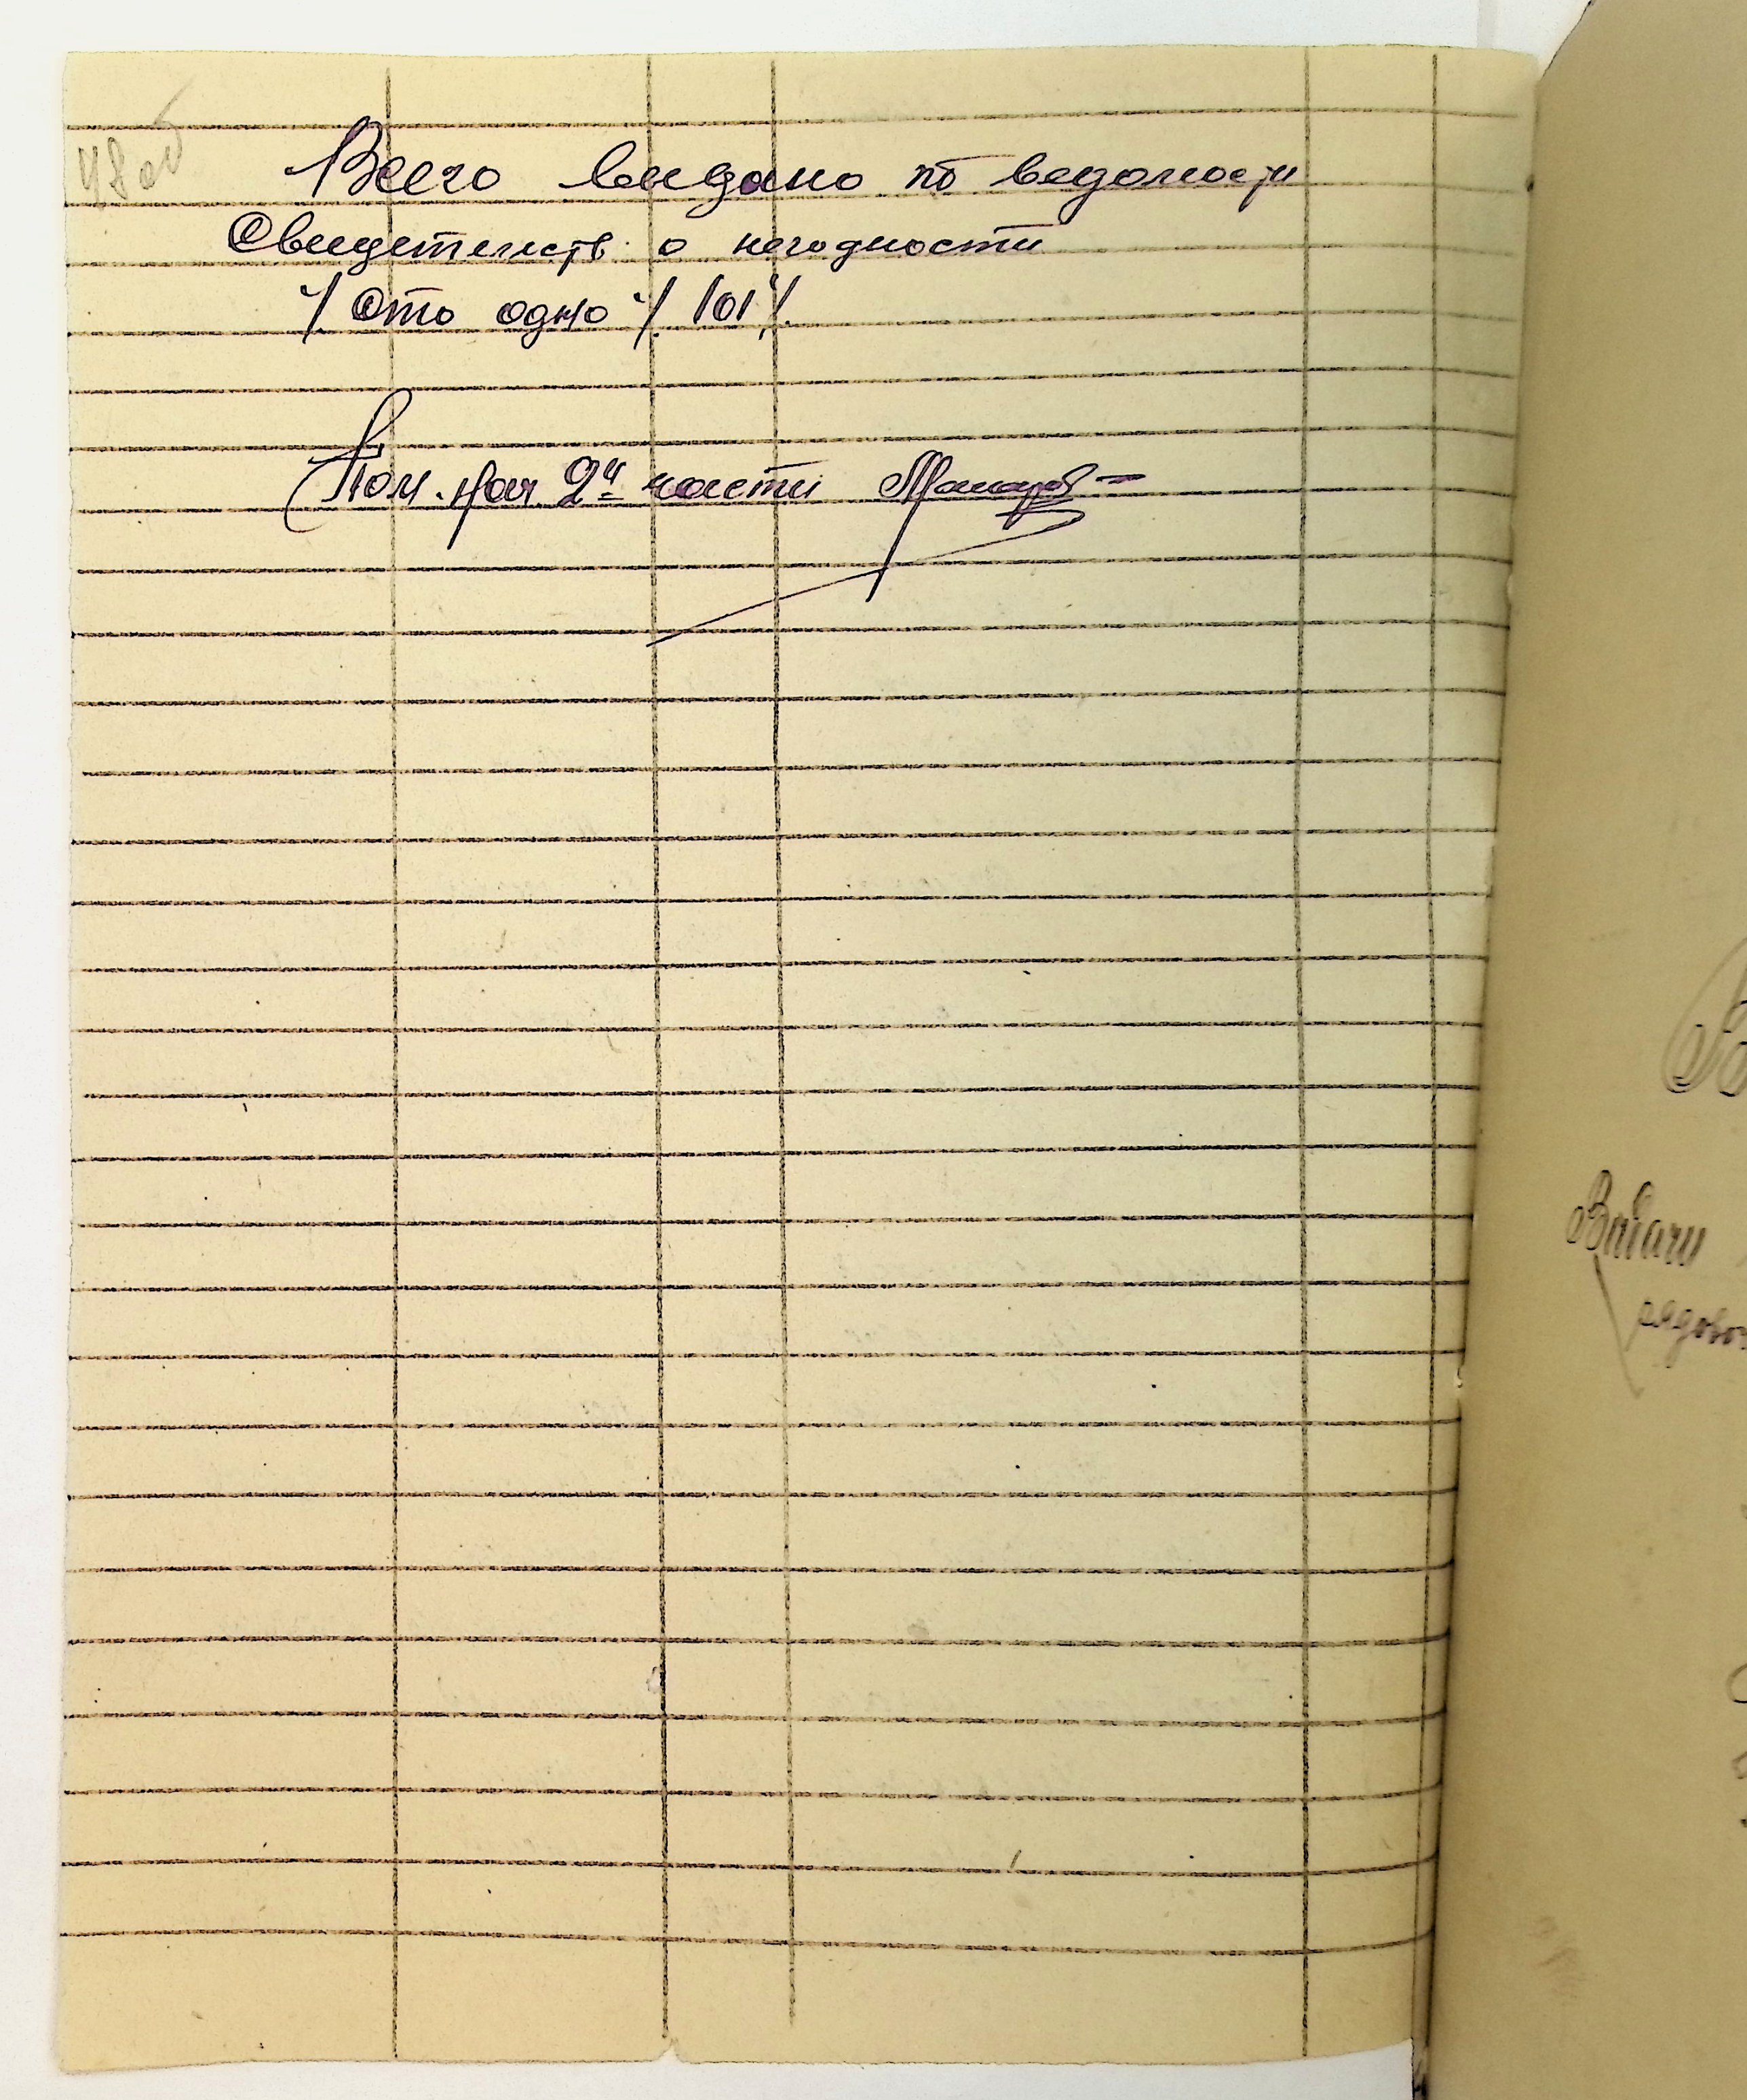 48об
Всего выдано по ведомости
Свидетельств о негодности
"/. Сто одно "/. 101 "/.
Пом. Нач 2й части
Выдачи
рядово